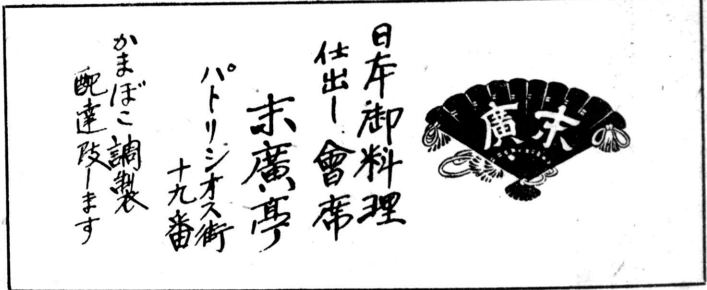 末廣
日本御料理
仕出し會席
末廣亭
パトリシオス街
十九番
かまぼこ調製
配達致します